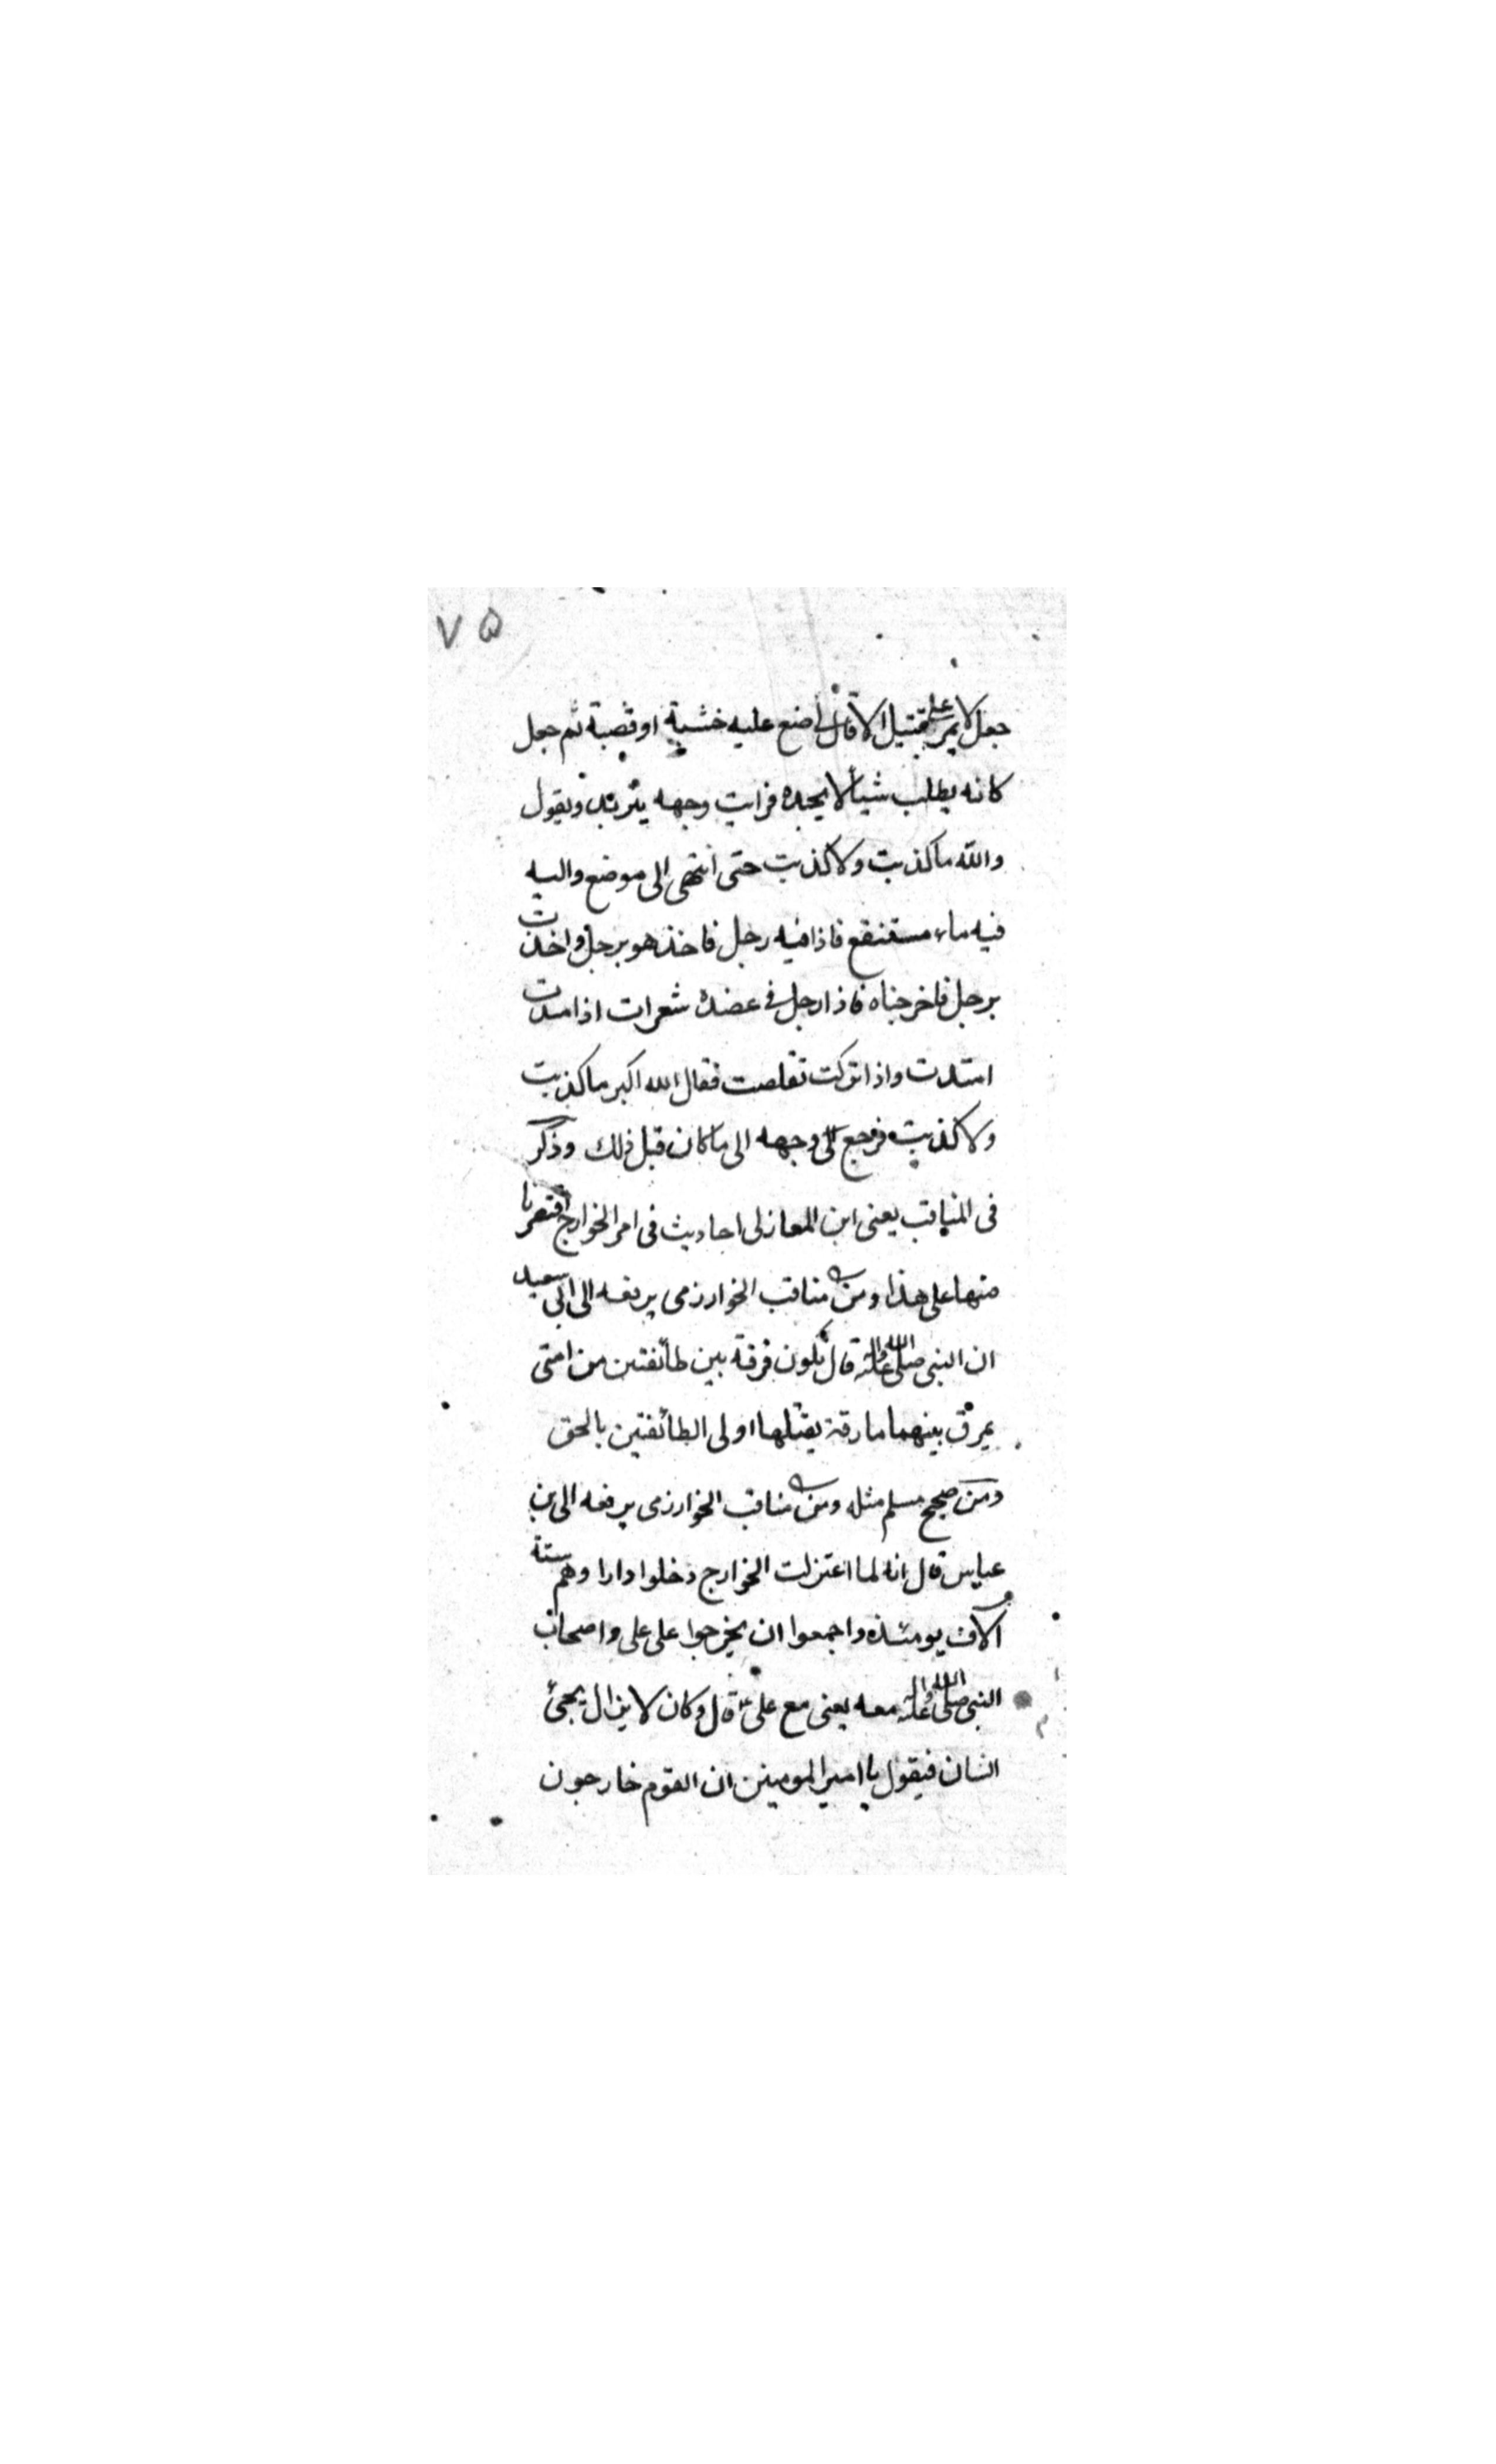 ٧٥
جعل لا يمر على قتيل الا قال لى اضع عليه خشبة او قصبة ثم جعل
كانه يطلب شيأ لا يجده فرايت وجهه يتربد ويقول
والله ما كذبت ولا كذبت حتى انتهى الى موضع والية
فيه ماء مستنقع فاذا فيه رجل فاخذ هو برجل واخذت
برجل فاخرجناه فاذا رجل فى عضده شعرات اذا مدت
امتدت واذا تركت تقلصت فقال الله اكبر ما كذبت
ولا كذبت فرجع الى وجهه الى ما كان قبل ذلك وذكر
فى المناقب يعنى ابن المغازلى احاديث فى امر الخوارج اقتصرنا
منها على هذا ومن مناقب الخوارزمى يرفعه الى ابى سعيد
ان النبى صلى الله عليه واله قال تكون فرقة بين طائفتين من امتى
يمرق بينهما مارقة يقتلها اولى الطائفتين بالحق
ومن صحيح مسلم مثله ومن مناقب الخوارزمى يرفعه الى بن
عباس قال انه لما اعتزلت الخوارج دخلوا دارا وهم ستة
آلاف يومئذ واجمعوا ان يخرجوا على على واصحاب
النبى صلى الله عليه واله معه يعنى مع على ع قال وكان لا يزال يجئ
انسان فيقول يا امير المومنين ان القوم خارجون